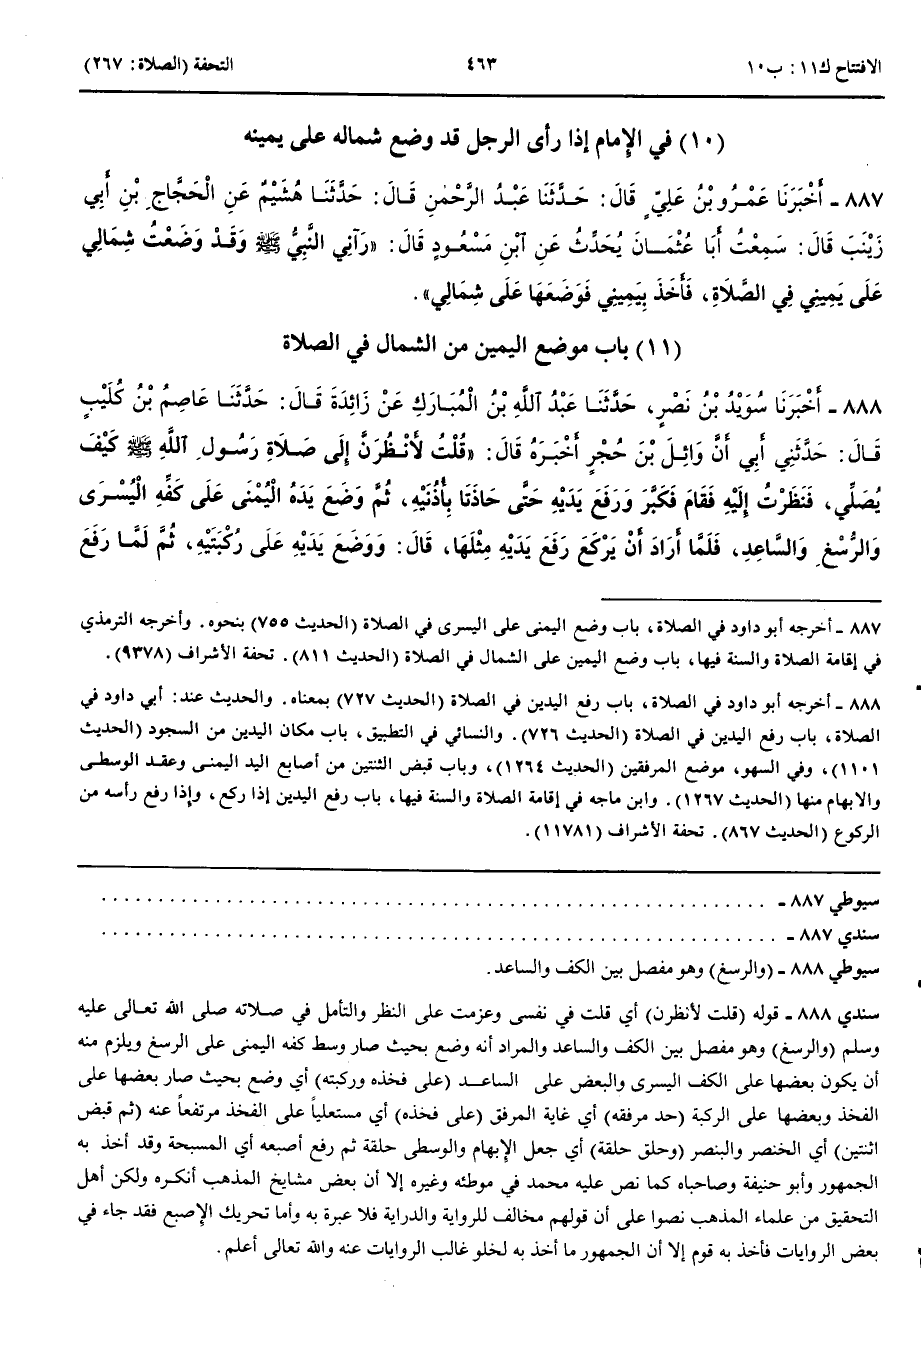 الافتتاح ك١١: ب١٠
٤٦٣
التحفة (الصلاة: ٢٦٧)
(١٠) في الإمام إذا رأى الرجل قد وضع شماله على يمينه
٨٨٧ ـ أَخْبَرَنَا عَمْرُو بْنُ عَلِيٍّ قَالَ: حَدَّثَنَا عَبْدُ الرَّحْمٰنِ قَالَ: حَدَّثَنَا هُشَيْمٌ عَنِ الْحَجَّاجِ بْنِ أَبِي
زَيْنَبَ قَالَ: سَمِعْتُ أَبَا عُثْمَانَ يُحَدِّثُ عَنِ ٱبْنِ مَسْعُودٍ قَالَ: «رَآنِي النَّبِيُّ ﷺ وَقَدْ وَضَعْتُ شِمَالِي
عَلَى يَمِينِي فِي الصَّلَاةِ، فَأَخَذَ بِيَمِينِي فَوَضَعَهَا عَلَى شِمَالِي».
(١١) باب موضع اليمين من الشمال في الصلاة
٨٨٨ ـ أَخْبَرَنَا سُوَيْدُ بْنُ نَصْرٍ، حَدَّثَنَا عَبْدُ ٱللَّهِ بْنُ الْمُبَارَكِ عَنْ زَائِدَةَ قَالَ: حَدَّثَنَا عَاصِمُ بْنُ كُلَيْبٍ
قَالَ: حَدَّثَنِي أَبِي أَنَّ وَائِلَ بْنَ حُجْرٍ أَخْبَرَهُ قَالَ: «قُلْتُ لَأَنْظُرَنَّ إِلَى صَلَاةِ رَسُولِ ٱللَّهِ ﷺ كَيْفَ
يُصَلِّي، فَنَظَرْتُ إِلَيْهِ فَقَامَ فَكَبَّرَ وَرَفَعَ يَدَيْهِ حَتَّى حَاذَتَا بِأُذُنَيْهِ، ثُمَّ وَضَعَ يَدَهُ الْيُمْنَى عَلَى كَفِّهِ الْيُسْرَى
وَالرُّسْغِ وَالسَّاعِدِ، فَلَمَّا أَرَادَ أَنْ يَرْكَعَ رَفَعَ يَدَيْهِ مِثْلَهَا، قَالَ: وَوَضَعَ يَدَيْهِ عَلَى رُكْبَتَيْهِ، ثُمَّ لَمَّا رَفَعَ
٨٨٧ ـ أخرجه أبو داود في الصلاة، باب وضع اليمنى على اليسرى في الصلاة (الحديث ٧٥٥) بنحوه. وأخرجه الترمذي
في إقامة الصلاة والسنة فيها، باب وضع اليمين على الشمال في الصلاة (الحديث ٨١١). تحفة الأشراف (٩٣٧٨).
٨٨٨ ـ أخرجه أبو داود في الصلاة، باب رفع اليدين في الصلاة (الحديث ٧٢٧) بمعناه. والحديث عند: أبي داود في
الصلاة، باب رفع اليدين في الصلاة (الحديث ٧٢٦). والنسائي في التطبيق، باب مكان اليدين من السجود (الحديث
١١٠١)، وفي السهو، موضع المرفقين (الحديث ١٢٦٤)، وباب قبض الثنتين من أصابع اليد اليمنى وعقد الوسطى
والابهام منها (الحديث ١٢٦٧). وابن ماجه في إقامة الصلاة والسنة فيها، باب رفع اليدين إذا ركع، وإذا رفع رأسه من
الركوع (الحديث ٨٦٧). تحفة الأشراف (١١٧٨١).
سيوطي ٨٨٧ ـ ......................................................
سندي ٨٨٧ ـ ......................................................
سيوطي ٨٨٨ ـ (والرسغ) وهو مفصل بين الكف والساعد.
سندي ٨٨٨ ـ قوله (قلت لأنظرن) أي قلت في نفسى وعزمت على النظر والتأمل في صلاته صلى الله تعالى عليه
وسلم (والرسغ) وهو مفصل بين الكف والساعد والمراد أنه وضع بحيث صار وسط كفه اليمنى على الرسغ ويلزم منه
أن يكون بعضها على الكف اليسرى والبعض على الساعد (على فخذه وركبته) أي وضع بحيث صار بعضها على
الفخذ وبعضها على الركبة (حد مرفقه) أي غاية المرفق (على فخذه) أي مستعلياً على الفخذ مرتفعاً عنه (ثم قبض
اثنتين) أي الخنصر والبنصر (وحلق حلقة) أي جعل الإبهام والوسطى حلقة ثم رفع أصبعه أي المسبحة وقد أخذ به
الجمهور وأبو حنيفة وصاحباه كما نص عليه محمد في موطئه وغيره إلا أن بعض مشايخ المذهب أنكره ولكن أهل
التحقيق من علماء المذهب نصوا على أن قولهم مخالف للرواية والدراية فلا عبرة به وأما تحريك الإصبع فقد جاء في
بعض الروايات فأخذ به قوم إلا أن الجمهور ما أخذ به لخلو غالب الروايات عنه والله تعالى أعلم.